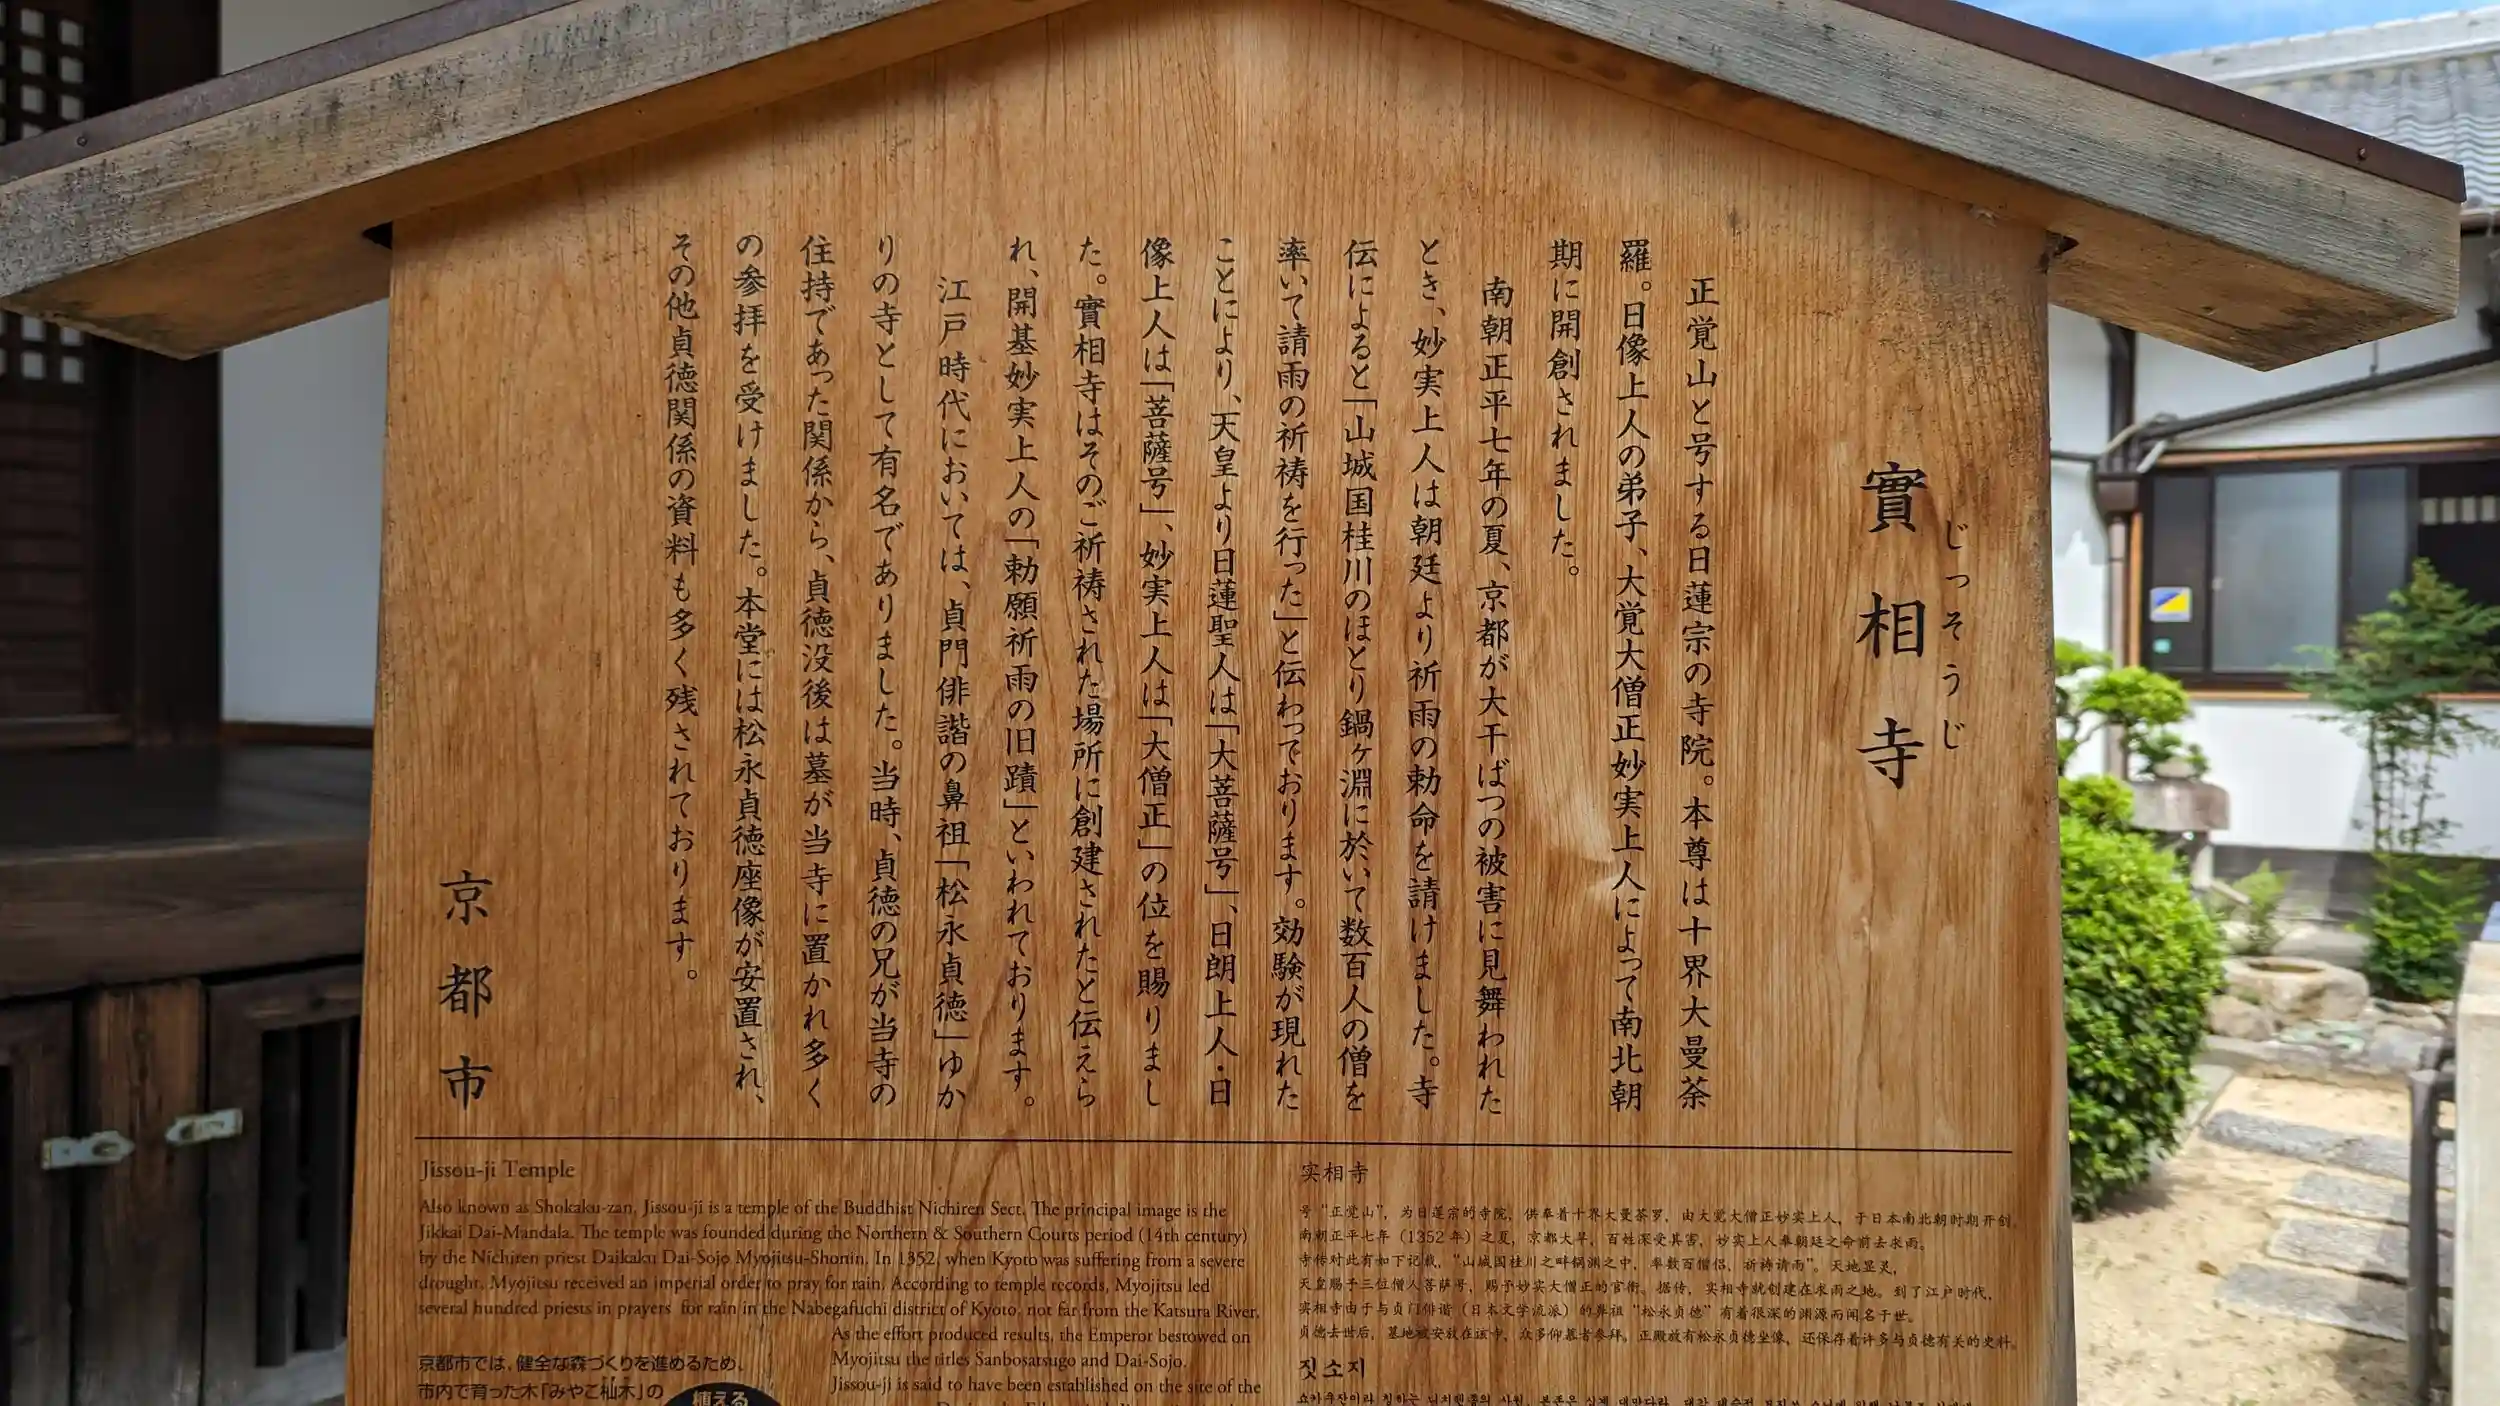 實相寺
じっそうじ
正覚山と号する日蓮宗の寺院。本尊は十界大曼荼
羅。日像上人の弟子、大覚大僧正妙実上人によって南北朝
期に開創されました。
南朝正平七年の夏、京都が大干ばつの被害に見舞われた
とき、妙実上人は朝廷より祈雨の勅命を請けました。寺
伝によると「山城国桂川のほとり鍋ヶ淵に於いて数百人の僧を
率いて請雨の祈祷を行った」と伝わっております。効験が現れた
ことにより、天皇より日蓮聖人は「大菩薩号」、日朗上人・日
像上人は「菩薩号」、妙実上人は「大僧正」の位を賜りまし
た。實相寺はそのご祈祷された場所に創建されたと伝えら
れ、開基妙実上人の「勅願祈雨の旧蹟」といわれております。
江戸時代においては、貞門俳諧の鼻祖「松永貞徳」ゆか
りの寺として有名でありました。当時、貞徳の兄が当寺の
住持であった関係から、貞徳没後は墓が当寺に置かれ多く
の参拝を受けました。本堂には松永貞徳座像が安置され、
その他貞徳関係の資料も多く残されております。
京都市
Jissou-ji Temple
Also known as Shokaku-zan, Jissou-ji is a temple of the Buddhist Nichiren Sect. The principal image is the
Jikkai Dai-Mandala. The temple was founded during the Northern & Southern Courts period (14th century)
by the Nichiren priest Daikaku Dai-Sojo Myojitsu-Shonin. In 1352, when Kyoto was suffering from a severe
drought, Myojitsu received an imperial order to pray for rain. According to temple records, Myojitsu led
several hundred priests in prayers for rain in the Nabegafuchi district of Kyoto, not far from the Katsura River.
As the effort produced results, the Emperor bestowed on
Myojitsu the titles Sanbosatsugo and Dai-Sojo.
Jissou-ji is said to have been established on the site of the
京都市では、健全な森づくりを進めるため、
市内で育った木「みやこ杣木」の
植える
实相寺
号“正觉山”，为日莲宗的寺院，供奉着十界大曼荼罗，由大觉大僧正妙实上人，于日本南北朝时期开创。
南朝正平七年（1352 年）之夏，京都大旱，百姓深受其害，妙实上人奉朝廷之命前去求雨。
寺传对此有如下记载，“山城国桂川之畔锅渊之中，率数百僧侣，祈祷请雨”。天地显灵，
天皇赐予三位僧人菩萨号，赐予妙实大僧正的官衔。据传，实相寺就创建在求雨之地。到了江户时代，
实相寺由于与贞门俳谐（日本文学流派）的鼻祖“松永贞德”有着很深的渊源而闻名于世。
贞德去世后，墓地被安放在该寺，众多仰慕者参拜。正殿放有松永贞德坐像，还保存着许多与贞德有关的史料。
짓소지